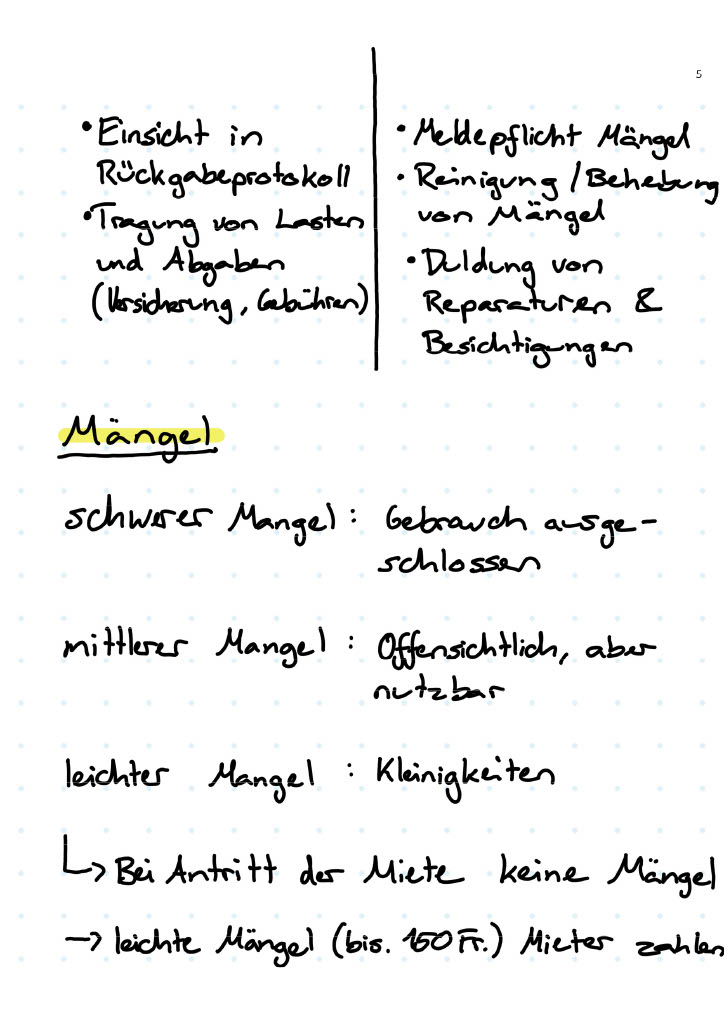 5
• Einsicht in
Rückgabeprotokoll
• Tragung von Lasten
und Abgaben
(Versicherung, Gebühren)
• Meldepflicht Mängel
• Reinigung / Behebung
von Mängel
• Duldung von
Reparaturen &
Besichtigungen
Mängel
schwerer Mangel : Gebrauch ausge-
schlossen
mittlerer Mangel : Offensichtlich, aber
nutzbar
leichter Mangel : Kleinigkeiten
↳ Bei Antritt der Miete keine Mängel
→ leichte Mängel (bis. 150 Fr.) Mieter zahlen